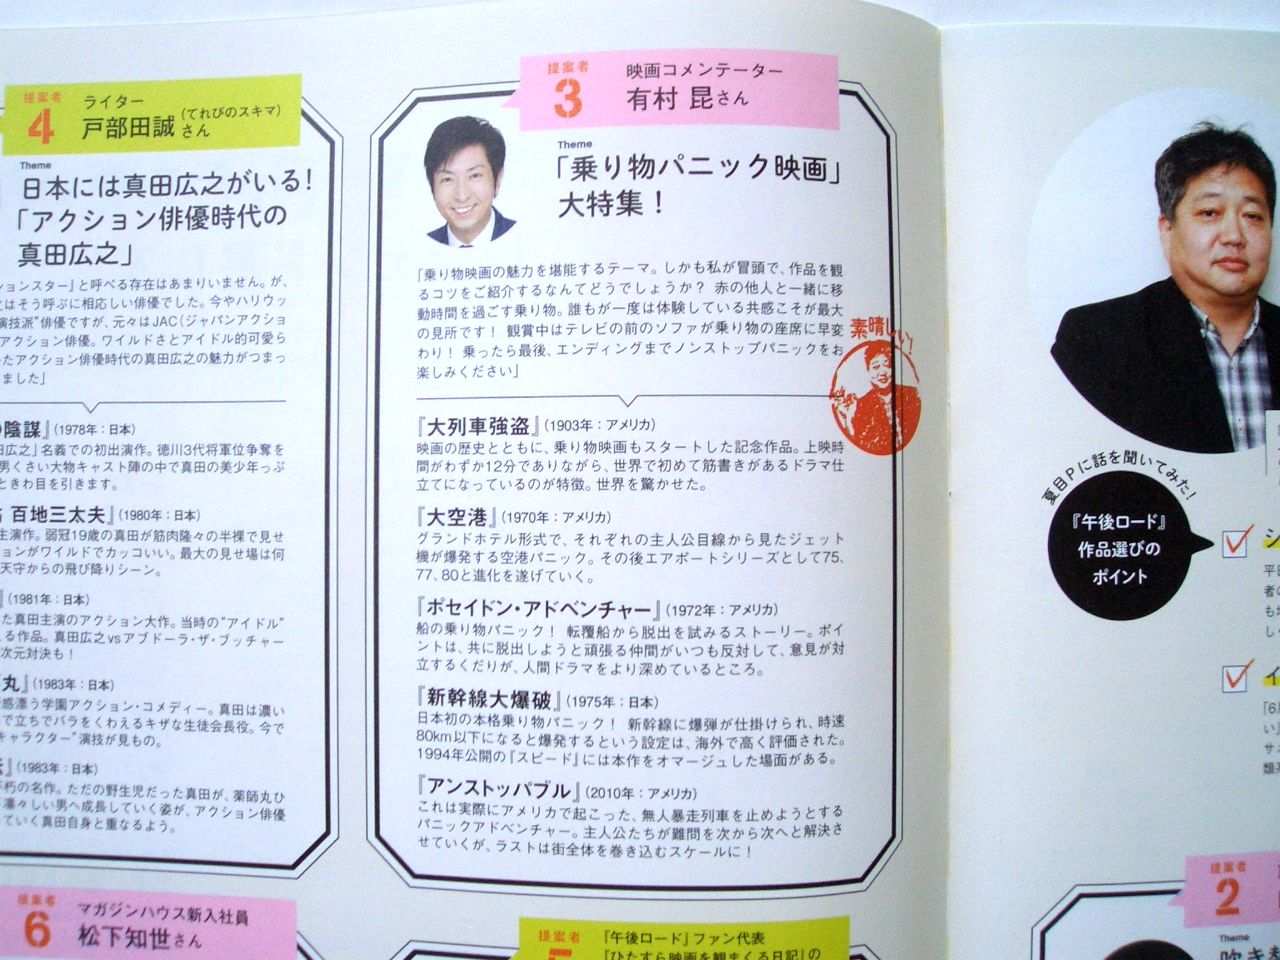 提案者
4
ライター
戸部田誠(てれびのスキマ)さん
Theme
日本には真田広之がいる!
「アクション俳優時代の
真田広之」
ションスター」と呼べる存在はあまりいません。が、
はそう呼ぶに相応しい俳優でした。今やハリウッ
演技派"俳優ですが、元々はJAC(ジャパンアクショ
アクション俳優。ワイルドさとアイドル的可愛ら
たアクション俳優時代の真田広之の魅力がつまっ
ました」
陰謀』(1978年:日本)
広之」名義での初出演作。徳川3代将軍位争奪を
男くさい大物キャスト陣の中で真田の美少年っぷ
ときわ目を引きます。
百地三太夫』(1980年:日本)
主演作。弱冠19歳の真田が筋肉隆々の半裸で見せ
ションがワイルドでカッコいい。最大の見せ場は何
天守からの飛び降りシーン。
』(1981年:日本)
た真田主演のアクション大作。当時の"アイドル"
る作品。真田広之vsアブドーラ・ザ・ブッチャー
次元対決も!
丸』(1983年:日本)
感漂う学園アクション・コメディー。真田は濃い
で立ちでバラをくわえるキザな生徒会長役。今で
キャラクター"演技が見もの。
』(1983年:日本)
朽の名作。ただの野生児だった真田が、薬師丸ひ
凛々しい男へ成長していく姿が、アクション俳優
ていく真田自身と重なるよう。
提案者
6
マガジンハウス新入社員
松下知世さん
提案者
3
映画コメンテーター
有村 昆さん
Theme
「乗り物パニック映画」
大特集!
「乗り物映画の魅力を堪能するテーマ。しかも私が冒頭で、作品を観
るコツをご紹介するなんてどうでしょうか? 赤の他人と一緒に移
動時間を過ごす乗り物。誰もが一度は体験している共感こそが最大
の見所です! 観賞中はテレビの前のソファが乗り物の座席に早変
わり! 乗ったら最後、エンディングまでノンストップパニックをお
楽しみください」
素晴しい!
『大列車強盗』(1903年:アメリカ)
映画の歴史とともに、乗り物映画もスタートした記念作品。上映時
間がわずか12分でありながら、世界で初めて筋書きがあるドラマ仕
立てになっているのが特徴。世界を驚かせた。
『大空港』(1970年:アメリカ)
グランドホテル形式で、それぞれの主人公目線から見たジェット
機が爆発する空港パニック。その後エアポートシリーズとして75、
77、80と進化を遂げていく。
『ポセイドン・アドベンチャー』(1972年:アメリカ)
船の乗り物パニック! 転覆船から脱出を試みるストーリー。ポイ
ントは、共に脱出しようと頑張る仲間がいつも反対して、意見が対
立するくだりが、人間ドラマをより深めているところ。
『新幹線大爆破』(1975年:日本)
日本初の本格乗り物パニック! 新幹線に爆弾が仕掛けられ、時速
80km以下になると爆発するという設定は、海外で高く評価された。
1994年公開の『スピード』には本作をオマージュした場面がある。
『アンストッパブル』(2010年:アメリカ)
これは実際にアメリカで起こった、無人暴走列車を止めようとする
パニックアドベンチャー。主人公たちが難問を次から次へと解決さ
せていくが、ラストは街全体を巻き込むスケールに!
提案者
『午後ロード』ファン代表
『ひたすら映画を観まくる日記』の
夏目Pに話を聞いてみた!
『午後ロード』
作品選びの
ポイント
シ
平日
者の
も地
し、
イ
「6月
い」
サス
類
提案者
2
Theme
吹き替